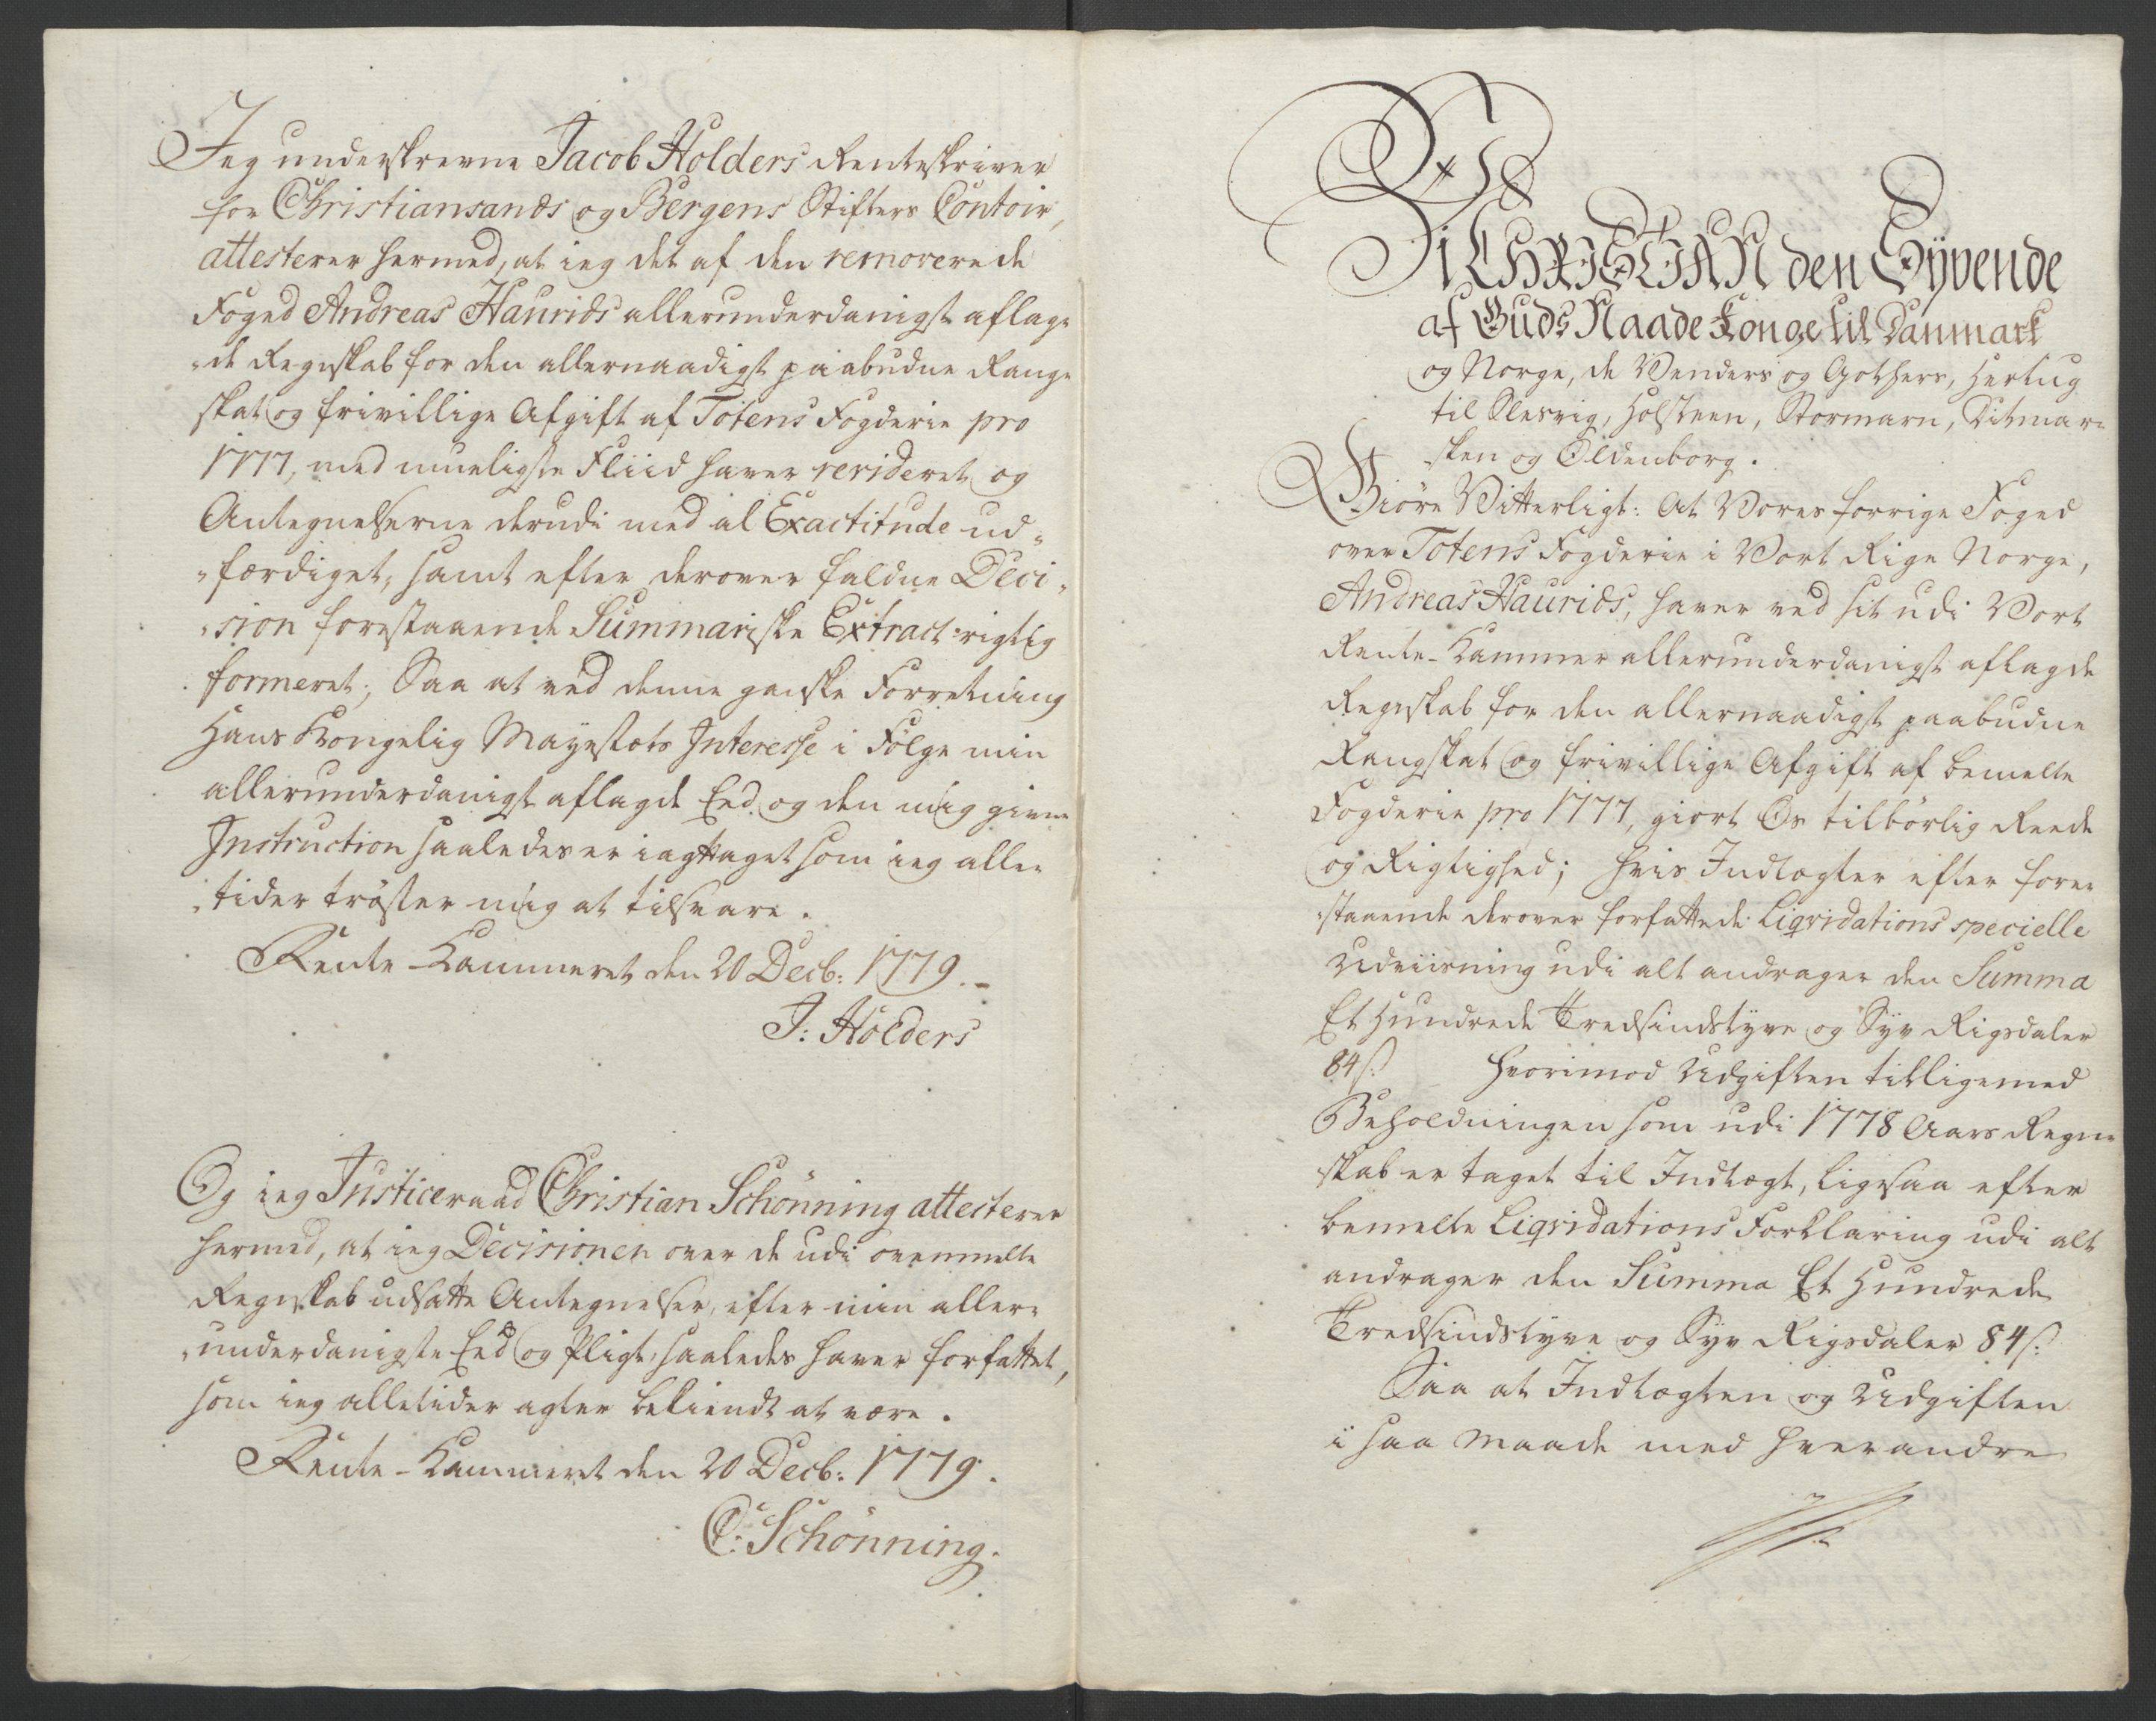 Jeg underskrevne Jacob Holders Renteskriver
for Christiansands og Bergens Stifters Contoir,
attesterer hermed, at ieg det af den removerede
Foged Andreas Haurids allerunderdanigst aflag-
-de Regnskab for den allernaadigst paabudne Rang-
skat og frivillige Afgift af Totens Fogderie pro
1777, med mueligste Fliid haver revideret og
Antegnelserne derudi med al Exactitude ud-
-færdiget, samt efter derover faldne Deci-
-sion forestaaende Summariske Extract rigtig
formeret; Saa at ved denne ganske Forretning
Hans Kongelig Mayestæts Interesse i Følge min
allerunderdanigst aflagde Eed og den mig givne
Instruction saaledes er iagttaget som ieg alle-
-tider trøster mig at tilsvare.
Rente-Kammeret den 20 Decb: 1779.-
J: Holders
Og ieg Justiceraad Christian Schönning attesterer
hermed, at ieg Decisionen over de udi ovenmelte
Regnskab udsatte Antegnelser, efter min aller-
-underdanigste Eed og Pligt, saaledes haver forfattet,
som ieg alletider agter bekiendt at være.
Rente-Kammeret den 20 Decb: 1779.
C: Schönning.
Vi CHRISTIAN den Syvende
af Guds Naade Konge til Danmark
og Norge, de Venders og Gothers, Hertug
til Slesvig, Holsteen, Stormarn, Ditmar-
-sken og Oldenborg.
Giöre Vitterligt: At Vores forrige Foged
over Totens Fogderie i Vort Rige Norge,
Andreas Haurids, haver ved sit udi Vort
Rente-Kammer allerunderdanigst aflagde
Regnskab for den allernaadigst paabudne
Rangskat og frivillige Afgift af bemelte
Fogderie pro 1777, giort Os tilbørlig Reede
og Rigtighed; hvis Indtægter efter fore-
-staaende derover forfattede Liqvidations specielle
Udviisning udi alt andrager den Summa
Et Hundrede Tredsindstyve og Syv Rigsdaler
84 s: hvorimod Udgiften tilligemed
Beholdningen som udi 1778 Aars Regn-
-skab er taget til Indtægt, ligesaa efter
bemelte Liqvidations Forklaring udi alt
andrager den Summa Et Hundrede
Tredsindstyve og Syv Rigsdaler 84 s:
Saa at Indtægten og Udgiften
i saa Maade med hverandre